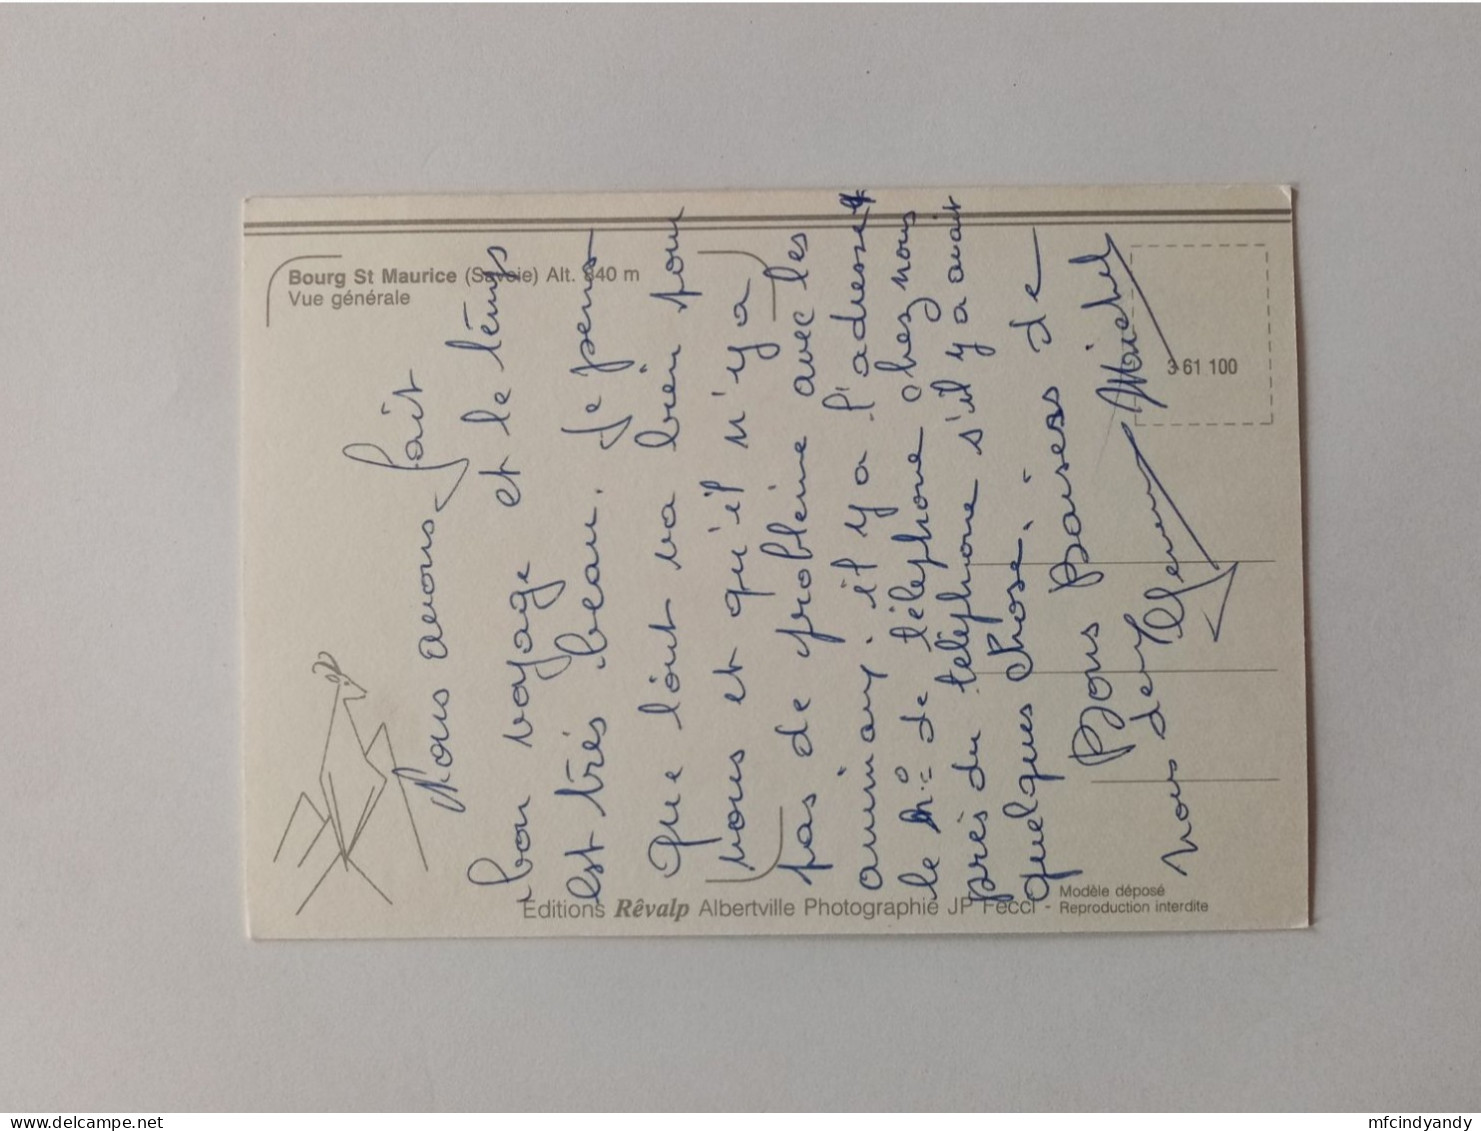 Bourg St Maurice (Savoie) Alt. 840 m
Vue générale
3 61 100
Nous avons fait
bon voyage et le temps
est très beau. Je pense
que tout va bien pour
vous et qu'il n'y a
pas de problème avec les
animaux. il y a l'adresse et
le n° de téléphone chez nous
près du téléphone s'il y avait
quelques chose.
Bons Baisers de
nous deux Michel
Editions Rêvalp Albertville Photographie JP Fecci - Modèle déposé
Reproduction interdite
delcampe.net
mfcindyandy